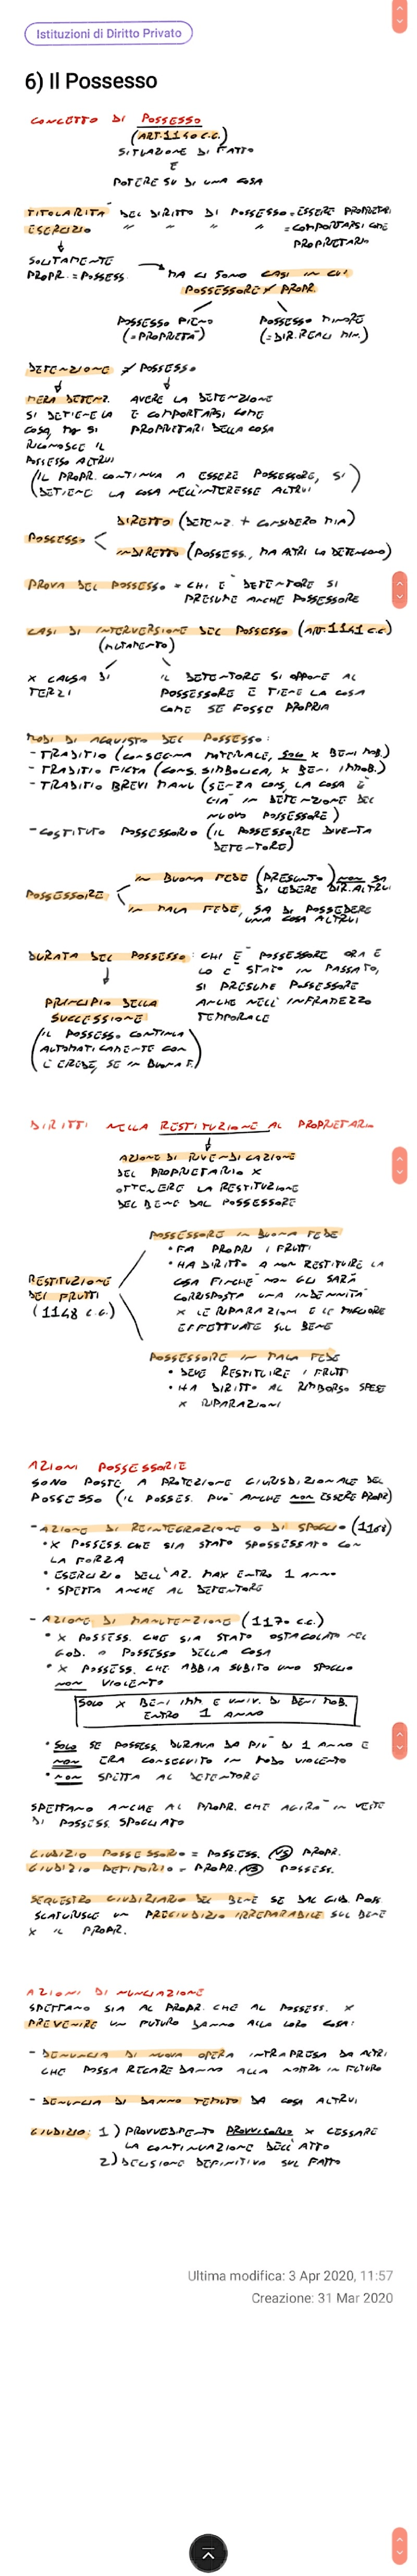 Istituzioni di Diritto Privato
6) Il Possesso
CONCETTO DI POSSESSO
(ART. 1140 C.C.)
SITUAZIONE DI FATTO
E
POTERE SU DI UNA COSA
TITOLARITÀ DEL DIRITTO DI POSSESSO = ESSERE PROPRIETARI
ESERCIZIO " " " " = COMPORTARSI COME
PROPRIETARIO
SOLITAMENTE
PROPR. = POSSESS.
MA CI SONO CASI IN CUI
POSSESSORE ≠ PROPR.
POSSESSO PIENO
(= PROPRIETÀ)
POSSESSO MINORE
(= DIR. REALI MIN.)
DETENZIONE ≠ POSSESSO
MERA DETENZ.
SI DETIENE LA
COSA, MA SI
RICONOSCE IL
POSSESSO ALTRUI
AVERE LA DETENZIONE
E COMPORTARSI COME
PROPRIETARI DELLA COSA
(IL PROPR. CONTINUA A ESSERE POSSESSORE, SI
DETIENE LA COSA NELL'INTERESSE ALTRUI)
POSSESSO
DIRETTO (DETENZ. + CONSIDERO MIA)
INDIRETTO (POSSESS., MA ALTRI LO DETENGONO)
PROVA DEL POSSESSO = CHI È DETENTORE SI
PRESUME ANCHE POSSESSORE
CASI DI INTERVERSIONE DEL POSSESSO (ART. 1141 C.C.)
(MUTAMENTO)
X CAUSA DI
TERZI
IL DETENTORE SI OPPONE AL
POSSESSORE E TIENE LA COSA
COME SE FOSSE PROPRIA
MODI DI ACQUISTO DEL POSSESSO:
- TRADITIO (CONSEGNA MATERIALE, SOLO X BENI MOB.)
- TRADITIO FICTA (CONS. SIMBOLICA, X BENI IMMOB.)
- TRADITIO BREVI MANU (SENZA CONS, LA COSA È
GIÀ IN DETENZIONE DEL
NUOVO POSSESSORE)
- COSTITUTO POSSESSORIO (IL POSSESSORE DIVENTA
DETENTORE)
POSSESSORE
IN BUONA FEDE (PRESUNTO) NON SA
DI LEDERE DIR. ALTRUI
IN MALA FEDE, SA DI POSSEDERE
UNA COSA ALTRUI
DURATA DEL POSSESSO: CHI È POSSESSORE ORA E
LO È STATO IN PASSATO,
SI PRESUME POSSESSORE
ANCHE NELL'INFRAMEZZO
TEMPORALE
PRINCIPIO DELLA
SUCCESSIONE
(IL POSSESSO CONTINUA
AUTOMATICAMENTE CON
L'EREDE, SE IN BUONA F.)
DIRITTI NELLA RESTITUZIONE AL PROPRIETARIO
AZIONE DI RIVENDICAZIONE
DEL PROPRIETARIO X
OTTENERE LA RESTITUZIONE
DEL BENE DAL POSSESSORE
RESTITUZIONE
DEI FRUTTI
(1148 C.C.)
POSSESSORE IN BUONA FEDE
• FA PROPRI I FRUTTI
• HA DIRITTO A NON RESTITUIRE LA
COSA FINCHÉ NON GLI SARÀ
CORRISPOSTA UNA INDENNITÀ
X LE RIPARAZIONI E LE MIGLIORE
EFFETTUATE SUL BENE
POSSESSORE IN MALA FEDE
• DEVE RESTITUIRE I FRUTTI
• HA DIRITTO AL RIMBORSO SPESE
X RIPARAZIONI
AZIONI POSSESSORIE
SONO POSTE A PROTEZIONE GIURISDIZIONALE DEL
POSSESSO (IL POSSES. PUÒ ANCHE NON ESSERE PROPR)
- AZIONE DI REINTEGRAZIONE O DI SPOGLIO (1168)
• X POSSESS. CHE SIA STATO SPOSSESSATO CON
LA FORZA
• ESERCIZIO DELL'AZ. MAX ENTRO 1 ANNO
• SPETTA ANCHE AL DETENTORE
- AZIONE DI MANUTENZIONE (1170 C.C.)
• X POSSESS. CHE SIA STATO OSTACOLATO NEL
GOD. O POSSESSO DELLA COSA
• X POSSESS. CHE ABBIA SUBITO UNO SPOGLIO
NON VIOLENTO
SOLO X BENI IMM. E UNIV. DI BENI MOB.
ENTRO 1 ANNO
• SOLO SE POSSESS. DURAVA DA PIÙ DI 1 ANNO E
NON ERA CONSEGUITO IN MODO VIOLENTO
• NON SPETTA AL DETENTORE
SPETTANO ANCHE AL PROPR. CHE AGIRÀ IN VESTE
DI POSSESS. SPOGLIATO
GIUDIZIO POSSESSORIO = POSSESS. VS PROPR.
GIUDIZIO PETITORIO = PROPR. VS POSSESS.
SEQUESTRO GIUDIZIARIO DEL BENE SE DAL GIUD. POSS.
SCATURISCE UN PREGIUDIZIO IRREPARABILE SUL BENE
X IL PROPR.
AZIONI DI NUNCIAZIONE
SPETTANO SIA AL PROPR. CHE AL POSSESS. X
PREVENIRE UN FUTURO DANNO ALLA LORO COSA:
- DENUNCIA DI NUOVA OPERA INTRAPRESA DA ALTRI
CHE POSSA RECARE DANNO ALLA NOSTRA IN FUTURO
- DENUNCIA DI DANNO TEMUTO DA COSA ALTRUI
GIUDIZIO: 1) PROVVEDIMENTO PROVVISORIO X CESSARE
LA CONTINUAZIONE DELL'ATTO
2) DECISIONE DEFINITIVA SUL FATTO
Ultima modifica: 3 Apr 2020, 11:57
Creazione: 31 Mar 2020